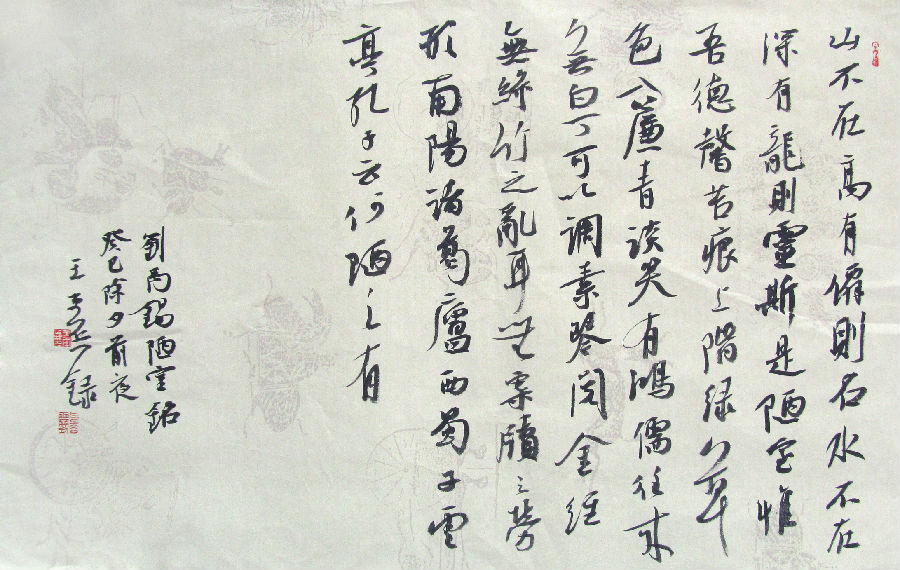 山不在高有僊則名水不在
深有龍則靈斯是陋室惟
吾德馨苔痕上階緑草
色入簾青談笑有鴻儒往来
無白丁可以調素琴閲金經
無絲竹之亂耳無案牘之勞
形南陽諸葛廬西蜀子雲
亭孔子云何陋之有
劉禹錫陋室銘
癸巳除夕前夜
王録